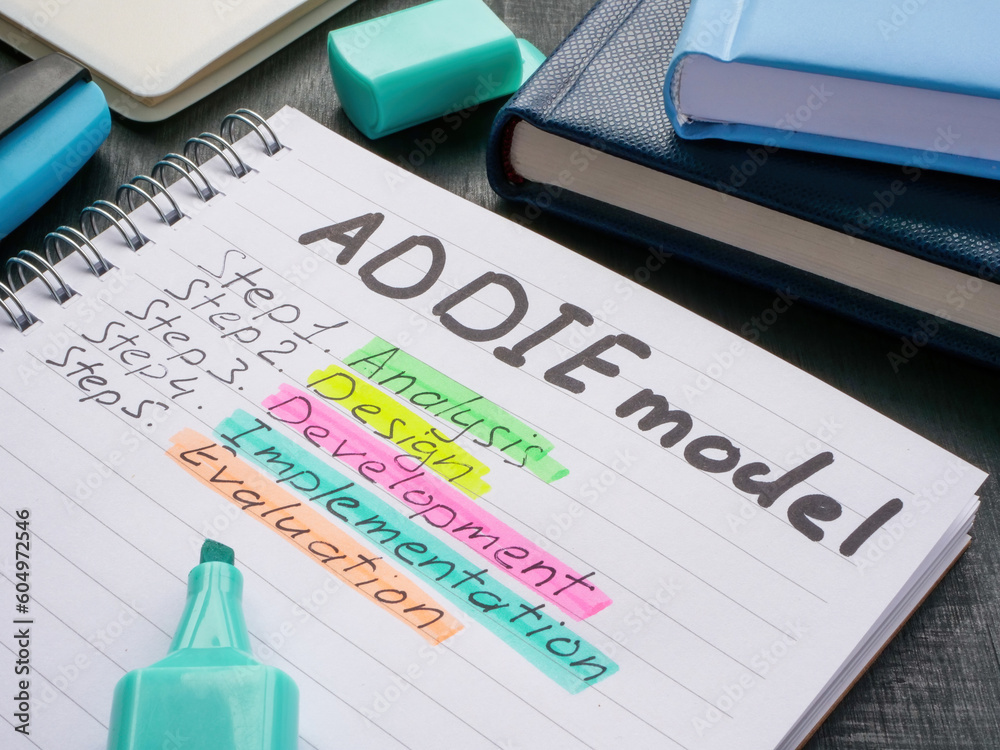 ADDIE model
Step 1. Analysis
Step 2. Design
Step 3. Development
Step 4. Implementation
Step 5. Evaluation
Adobe Stock | #604972546